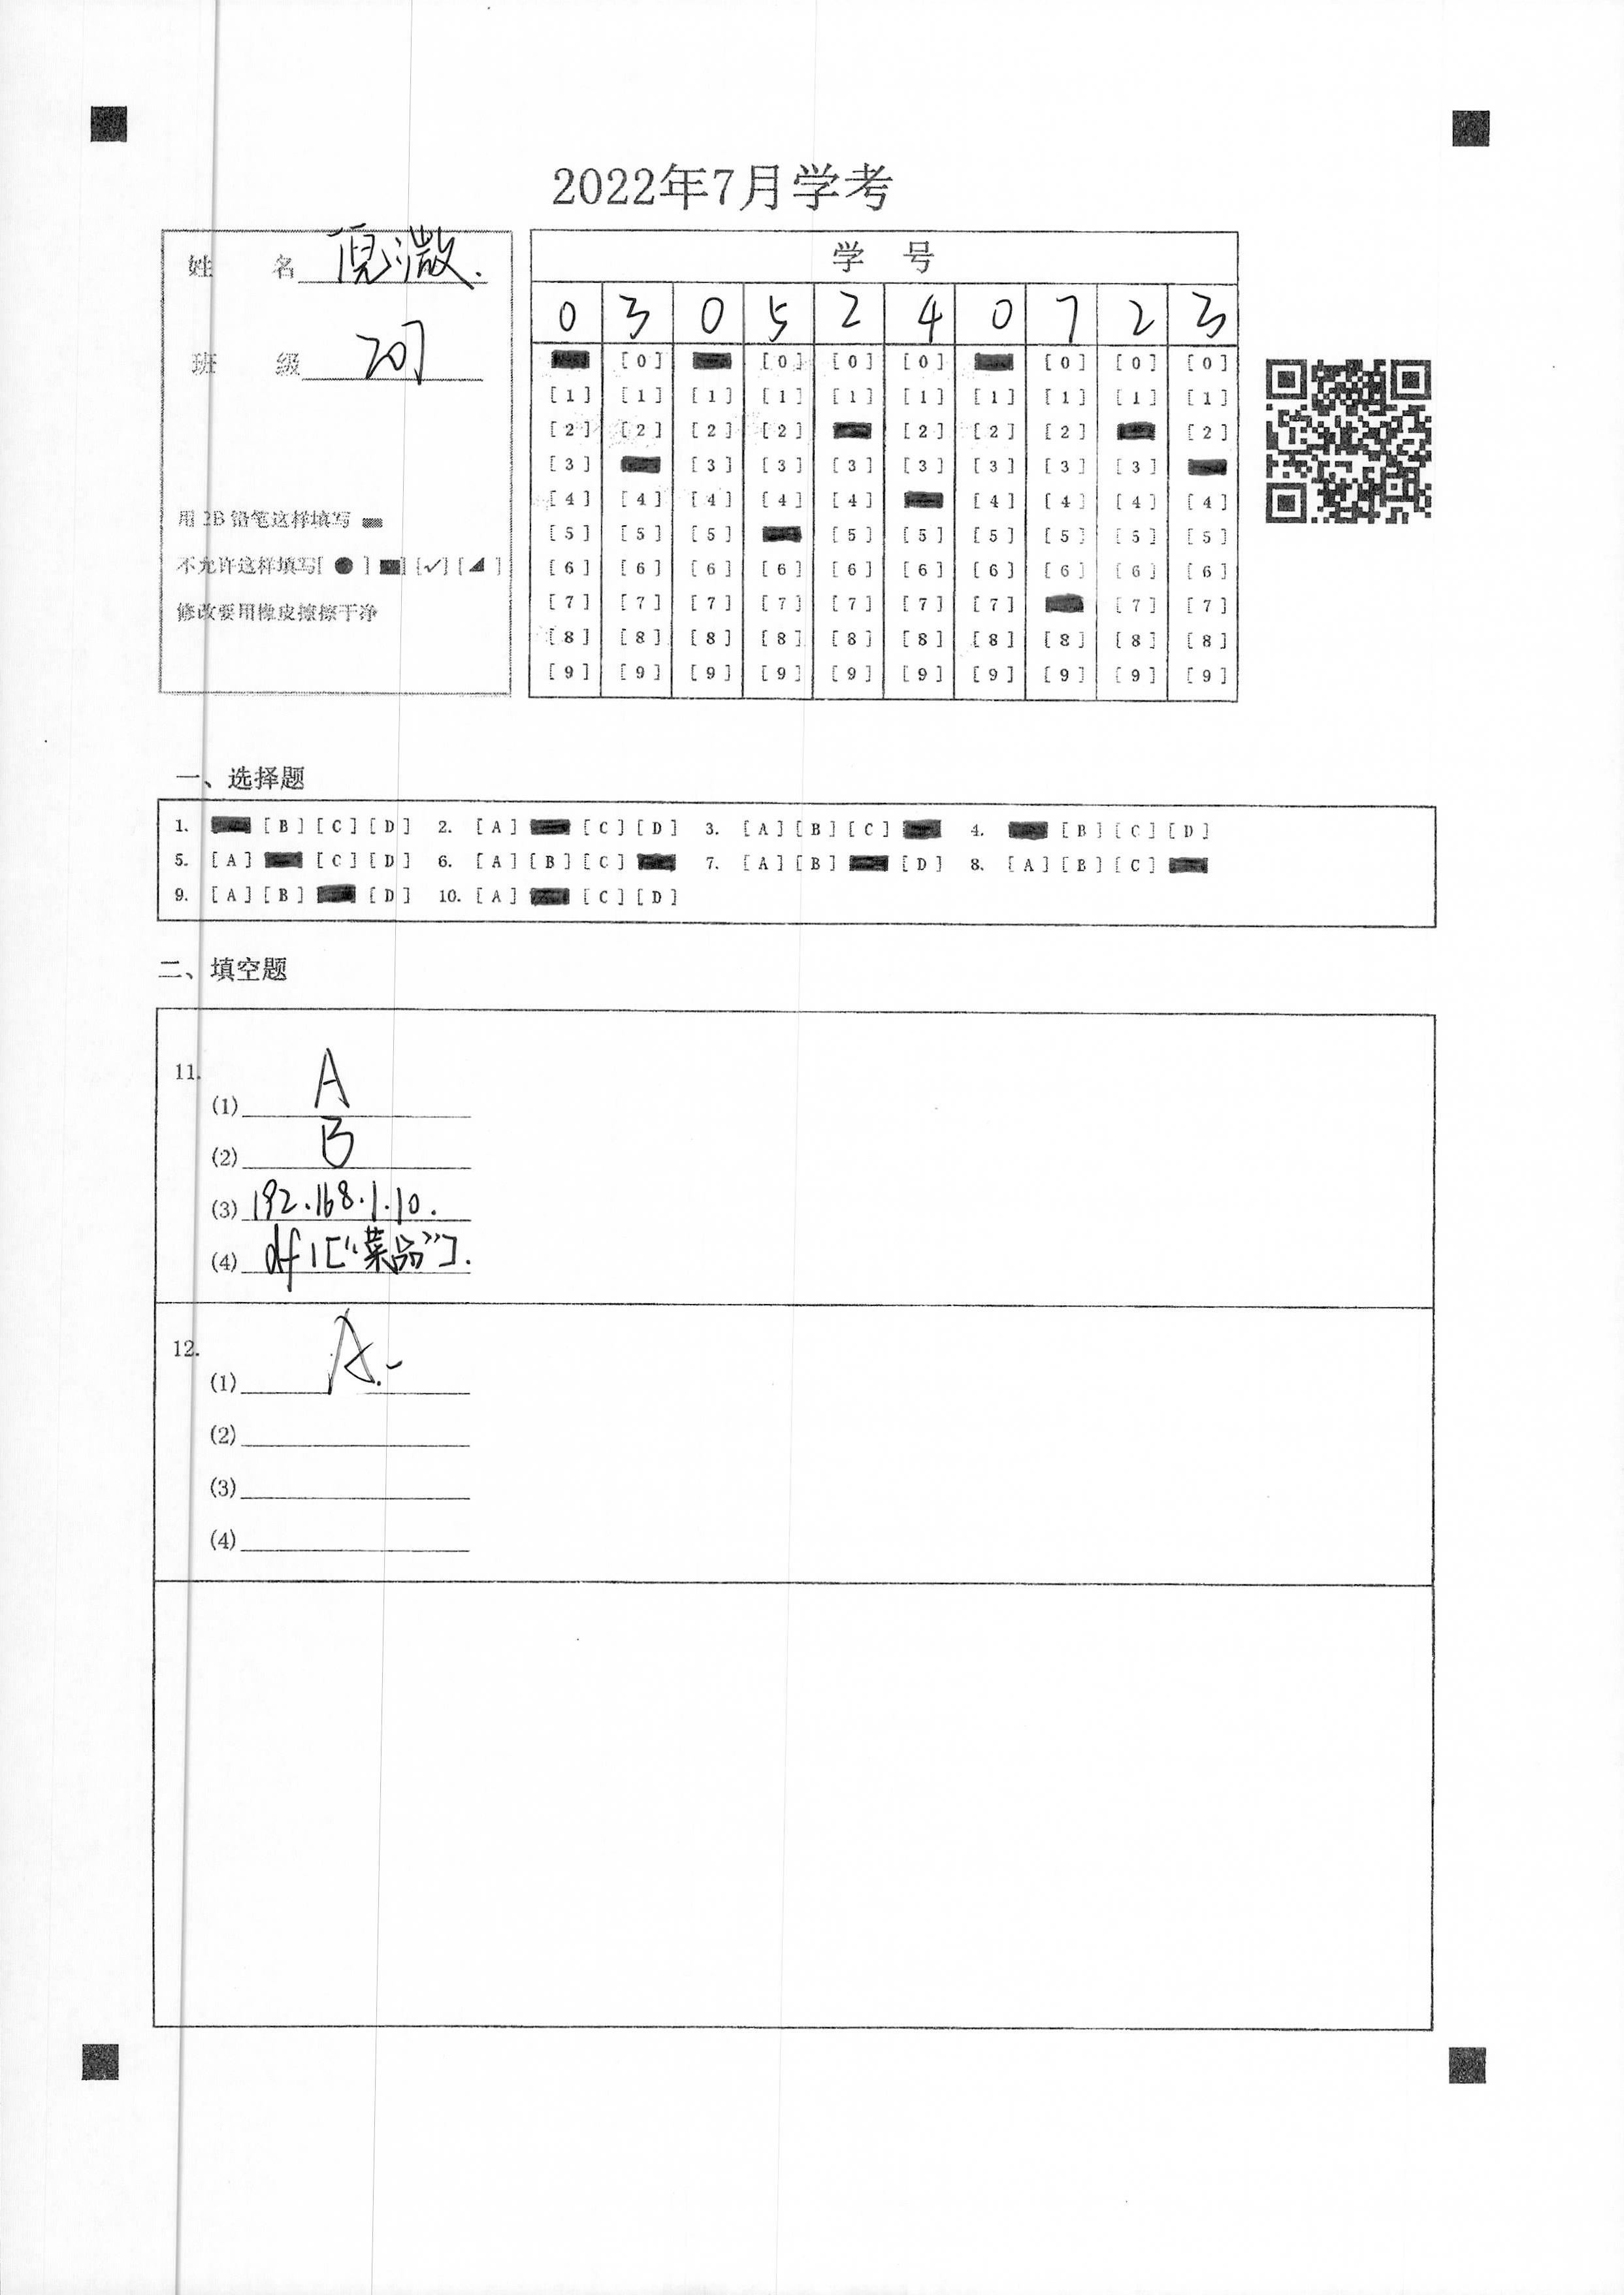 2022年7月学考
姓 名 倪潵.
班 级 207
用2B铅笔这样填写
不允许这样填写[ ● ] [■] [✓] [◢ ]
修改要用橡皮擦擦干净
学 号
0 3 0 5 2 4 0 7 2 3
[0] [0] [0] [0] [0] [0] [0]
[1] [1] [1] [1] [1] [1] [1] [1] [1] [1]
[2] [2] [2] [2] [2] [2] [2] [2]
[3] [3] [3] [3] [3] [3] [3] [3]
[4] [4] [4] [4] [4] [4] [4] [4] [4]
[5] [5] [5] [5] [5] [5] [5] [5] [5]
[6] [6] [6] [6] [6] [6] [6] [6] [6] [6]
[7] [7] [7] [7] [7] [7] [7] [7] [7]
[8] [8] [8] [8] [8] [8] [8] [8] [8] [8]
[9] [9] [9] [9] [9] [9] [9] [9] [9] [9]
一、选择题
1. [B] [C] [D] 2. [A] [C] [D] 3. [A] [B] [C] 4. [B] [C] [D]
5. [A] [C] [D] 6. [A] [B] [C] 7. [A] [B] [D] 8. [A] [B] [C]
9. [A] [B] [D] 10. [A] [C] [D]
二、填空题
11.
(1) A
(2) B
(3) 192.168.1.10.
(4) df1["菜品"].
12.
(1) A.
(2)
(3)
(4)